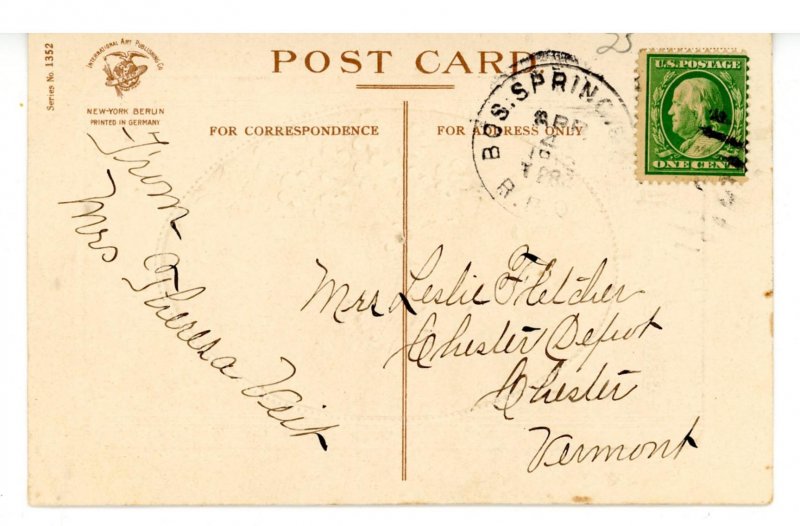 Series No. 1352
INTERNATIONAL ART PUBLISHING CO.
NEW-YORK BERLIN
PRINTED IN GERMANY
POST CARD
25
FOR CORRESPONDENCE
FOR ADDRESS ONLY
BOS. SPRING.
R.P.O
U.S. POSTAGE
ONE CENT
From
Mrs Theresa Veit
Mrs Leslie Fletcher
Chester Depot
Chester
Vermont